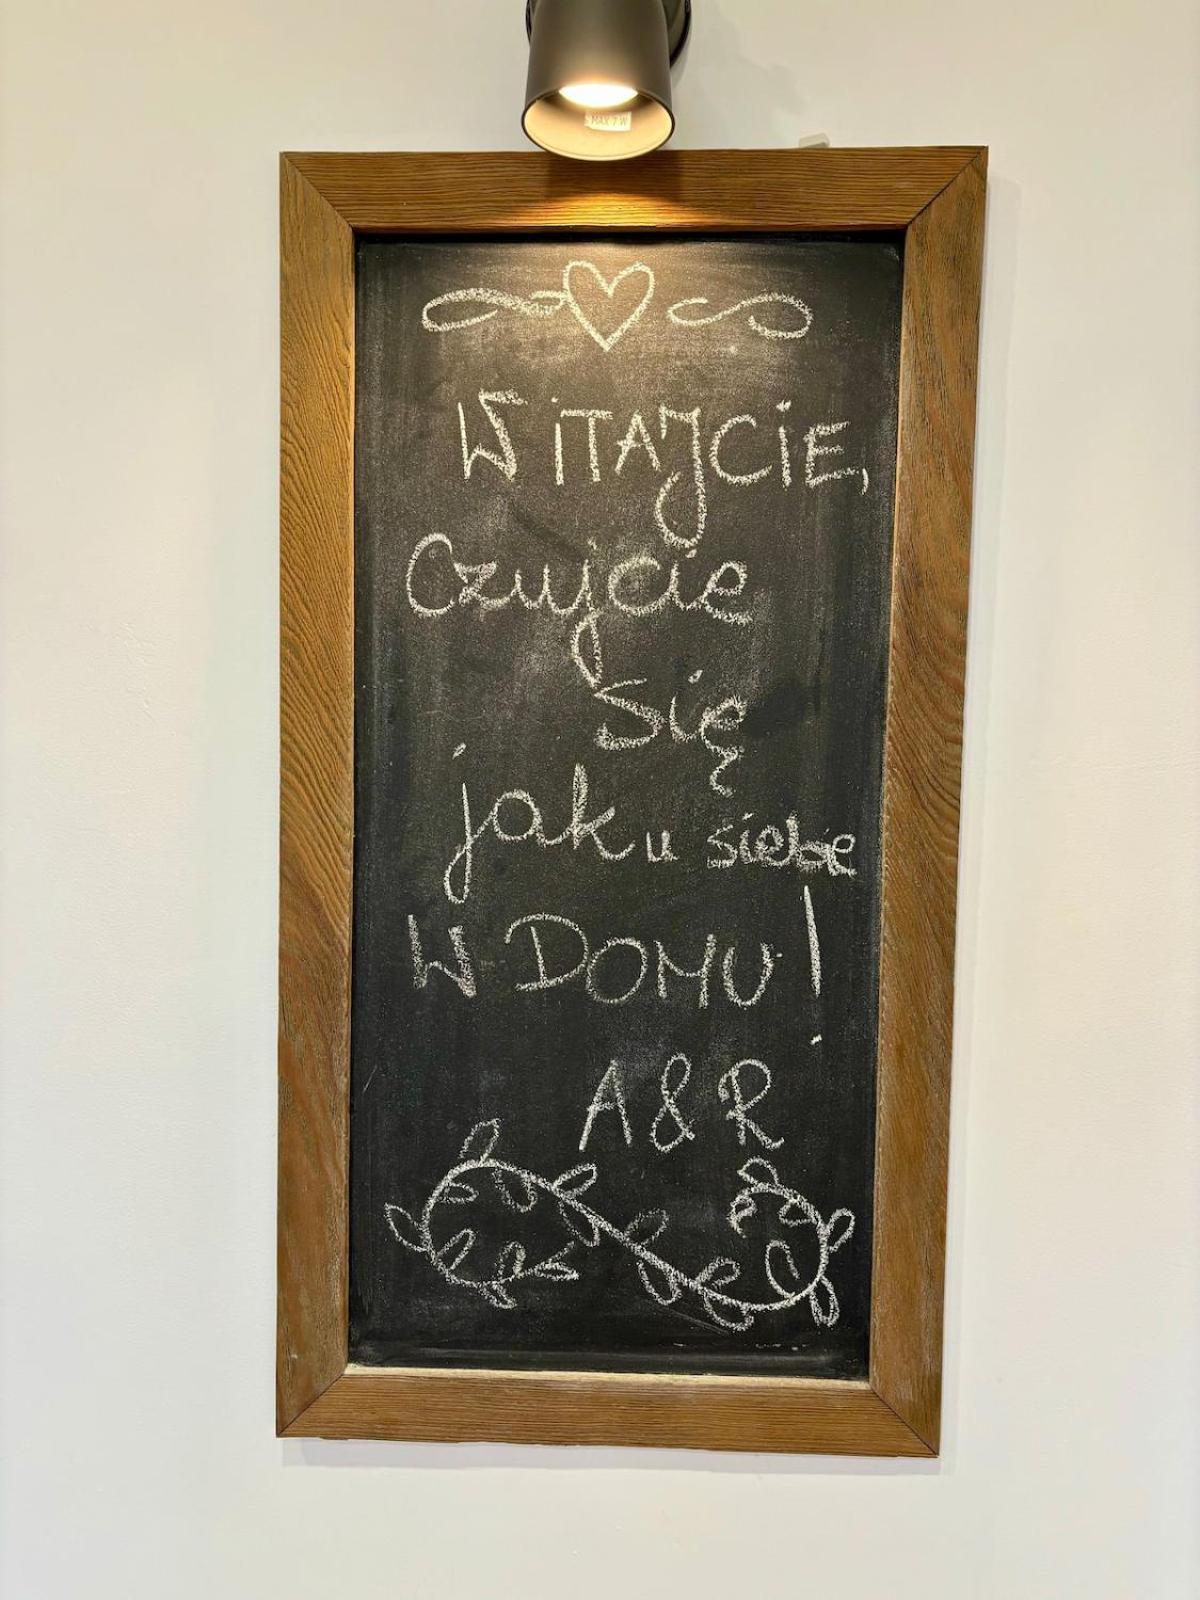 MAX 7 W
WiTAJCiE,
Czujcie
się
jak u siebie
W DOMU!
A&R